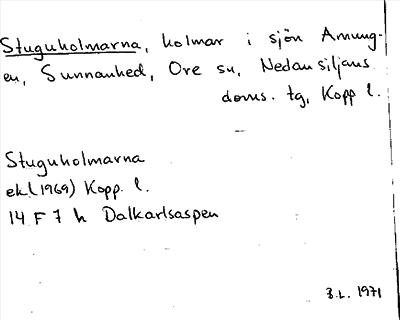 Stuguholmarna, holmar i sjön Amung-
en, Sunnanhed, Ore sn, Nedansiljans
doms. tg, Kopp l.
Stuguholmarna
ek.(1969) Kopp. l.
14 F 7 h Dalkarlsaspen
B.L. 1971